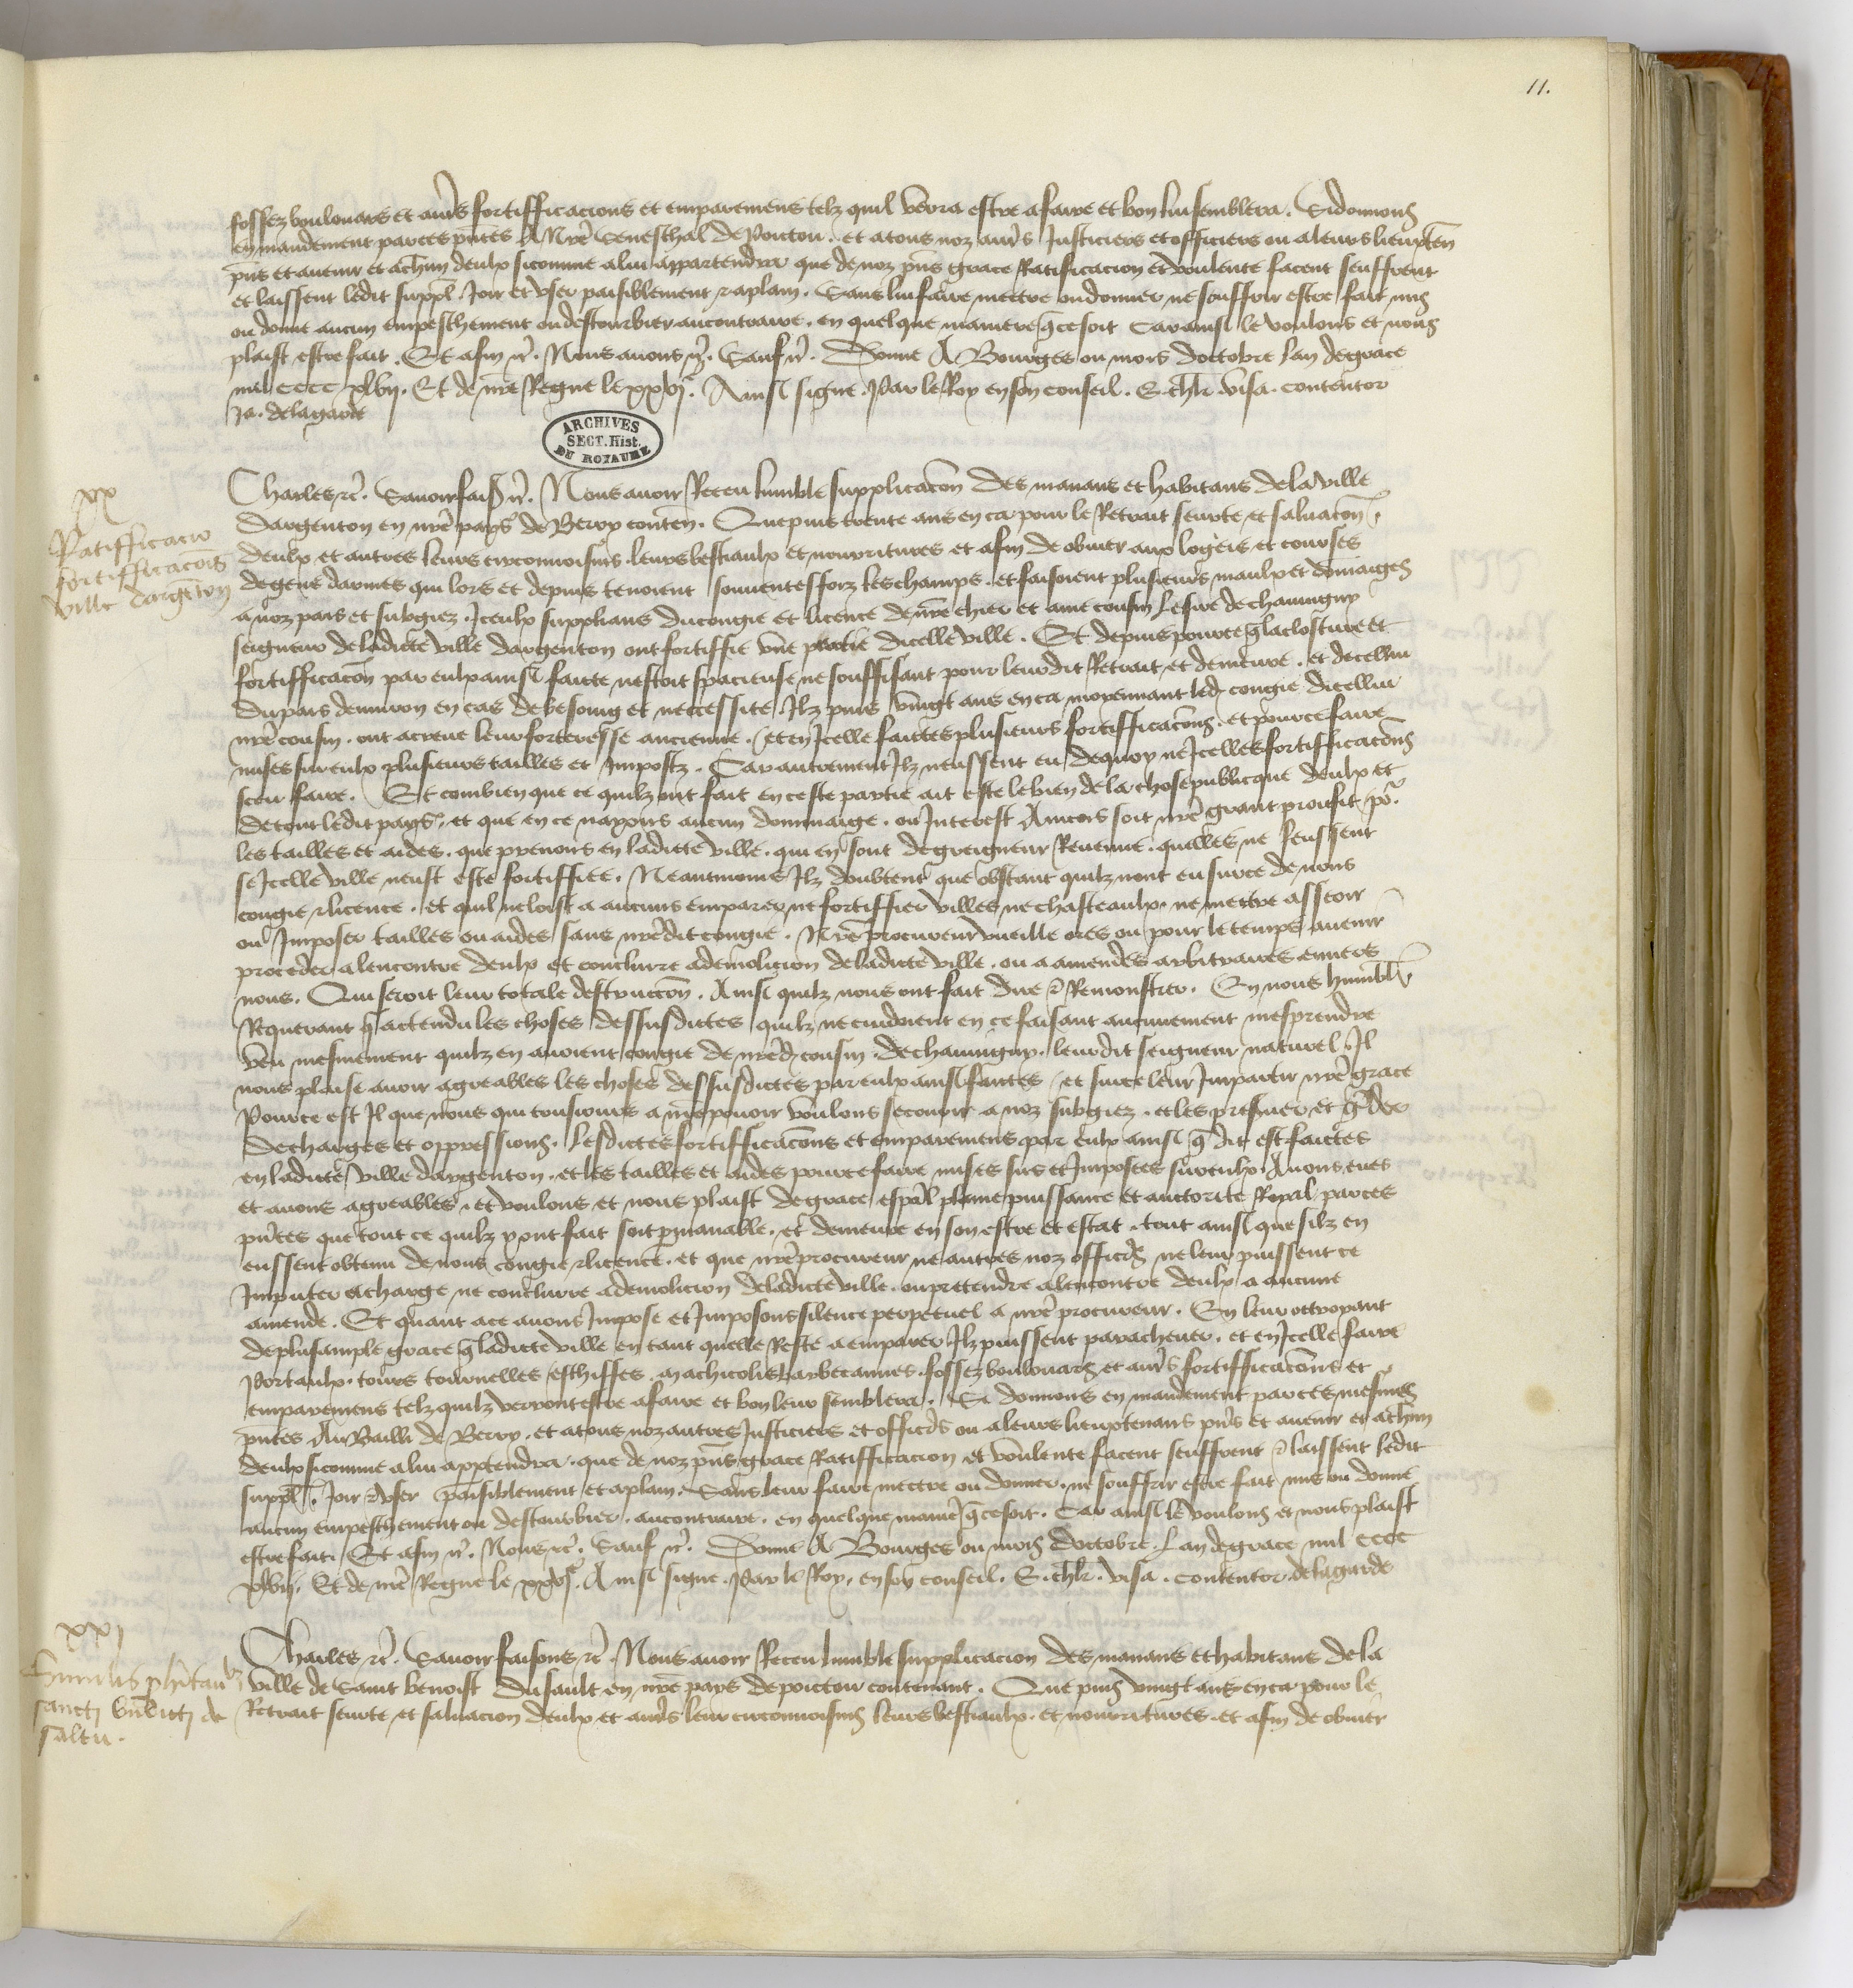 11.
fossez boulouars et aut's fortifficacions et emparemens telz quil verra estre afaire et bon lui semblera. Sidonnons
en mandement par ces pntes A Nre Seneschal de Poictou. et atous noz aut's Justiciers et officiers ou aleurs lieuxten
pns et auenir et achun deulx sicomme alui appartendra que de noz pns grace Ratificacion et voulente facent seuffrent
et laissent ledit suppl. Joir et vser paisiblement et aplain. Sans lui faire mectre ou donner ne souffrir estre fait mis
ou donne aucun empeschement ou destourbier aucontraire. en quelque maniere q ce soit Car ainsi le voulons et nous
plaist estre fait. Et afin &c. Nous auons &c. Sauf &c. Donne A Bourges ou mois doctobre lan degrace
mil cccc xlvij. Et de nre Regne le xxvj. Ainsi signe. Par le Roy en son conseil. E. chlr. visa. contentor
Ja. delagarde
ARCHIVES
SECT. Hist.
DU ROYAUME
xx
Ratifficacio
fortifficacois
ville dargenton
Charles &c. Sauoir fais &c. Nous auoir Receu lumble supplicacon des manans et habitans dela ville
dargenton en nre pays de Berry conten. Que puis trente ans en ca pour le Retrait seurte et saluacon
deulx et autres leurs circonuoisins. leurs bestiaulx et nourritures et afin de obuier aux logeis et courses
degens darmes qui lors et depuis tenoient souuentesfoiz les champs. et faisoient plusieurs maulx et dommaiges
a noz pais et subgiez. Iceulx supplians du congie et licence denre chier et ame cousin le sire de chauuigny
seigneur deladicte ville dargenton ont fortiffie vne partie dicelle ville. Et depuis pource q laclosture et
fortifficacon par eulx ainsi faicte nestoit spacieuse ne souffisant pour leurdit Retrait et demeure. et decellui
dupais denuiron en cas debesoing et neccessite. Ilz puis vingt ans enca moyennant led congie dicellui
nre cousin. ont acreue leur forteresse ancienne. et en Icelle faictes plusieurs fortifficacons. et pour ce faire
mises sur eulx plusieurs tailles et Impostz. Car autrement Ilz neussent eu dequoy ne Icelles fortifficacons
sceu faire. Et combien que ce quilz ont fait en ceste partie ait este le bien dela chose publicque deulx et
detout ledit pays. et que en ce nayons aucun dommaige. ou Interest Aincois soit nre grant prouffit po
les tailles et aides. que prenons en ladicte ville. qui en sont degreigneur Reuenue. quelles ne feussent
se Icelle ville neust este fortiffiee. Neantmoins Ilz doubtent que obstant quilz nont eu sur ce de nous
congie & licence. et quil ne loist a aucuns emparer ne fortiffier villes ne chasteaulx. ne mectre asseoir
ou Imposer tailles ou aides sans nredit congie. Nre procureur vueille ores ou pour le temps auenir
proceder alencontre deulx et conclurre ademolicion deladicte ville. ou aamendes arbitraires enuers
nous. Qui seroit leur totale destruccon. Ainsi quilz nous ont fait dire & Remonstrer. En nous humblt
Requerant q actendu les choses dessusdictes quilz ne cuidoient en ce faisant aucunement mesprendre
veu mesmement quilz en auoient congie de nred cousin. dechauuigny. leurdit seigneur naturel. Il
nous plaise auoir agreables les choses dessusdictes par eulx ainsi faictes / et sur ce leur Impartir nre grace
Pource est Il que nous qui tousiours a nre pouoir voulons secourir a noz subgiez. et les preseruer et gder
de charges et oppressions. Lesdictes fortifficacons et emparemens par eulx ainsi q dit est faictes
en ladicte ville dargenton. et les tailles et aides pour ce faire mises sus et Imposees sureulx Auons eues
et auons agreables. et voulons et nous plaist degrace espal plaine puissance et auctorite Royal par ces
pntes que tout ce quilz y ont fait soit pmanable. et demeure en son estre et estat. tout ainsi que silz en
eussent obtenu de nous congie & licence. et que nre procureur ne autres noz offics ne leur puissent ce
Imputer acharge ne conclurre ademolicion deladicte ville. oupretendre alencontre deulx a aucune
amende. Et quant ace auons Impose et Imposons silence perpetuel a nre procureur. En leur octroyant
deplusample grace q ladicte ville en tant quelle Reste aemparer Ilz puissent paracheuer. et en Icelle faire
Portaulx. tours tournelles eschiffes. machicolis barbecannes. fossez boulouars et aut's fortifficacons et
emparemens telz quilz verront estre afaire et bon leur semblera. Si donnons en mandement par ces mesmes
pntes. Au Bailli de Berry. et atous noz autres Justiciers et offics ou aleurs lieuxtenans pns et auenir et achun
deulx sicomme alui apptendra. que de noz pns grace Ratifficacion et voulente facent seuffrent & laissent ledit
suppl. Joir & vser paisiblement et aplain. Sans leur faire mectre ou donner. ne souffrir estre fait mis ou donne
aucun empeschement ou destourbier. aucontraire. en quelque manie q ce soit. Car ainsi le voulons et nous plaist
estre fait. Et afin &c. Nous &c. Sauf &c. Donne A Bourges ou mois doctobre. Lan degrace mil cccc
xlvij. Et de nre Regne le xxvj. Ainsi signe. Par le Roy, en son conseil. E. chlr. visa. contentor. delagarde
xxj
sancti bndicti de
saltu.
Charles &c. Sauoir faisons &c. Nous auoir Receu lumble supplicacion des manans et habitans dela
ville de Saint benoist dusault en nre pays depoictou contenant. Que puis vingt ans enca pour le
Retrait seurte et saluacion deulx et aut's leur circonuoisins leurs bestiaulx. et nourritures. et afin de obuier